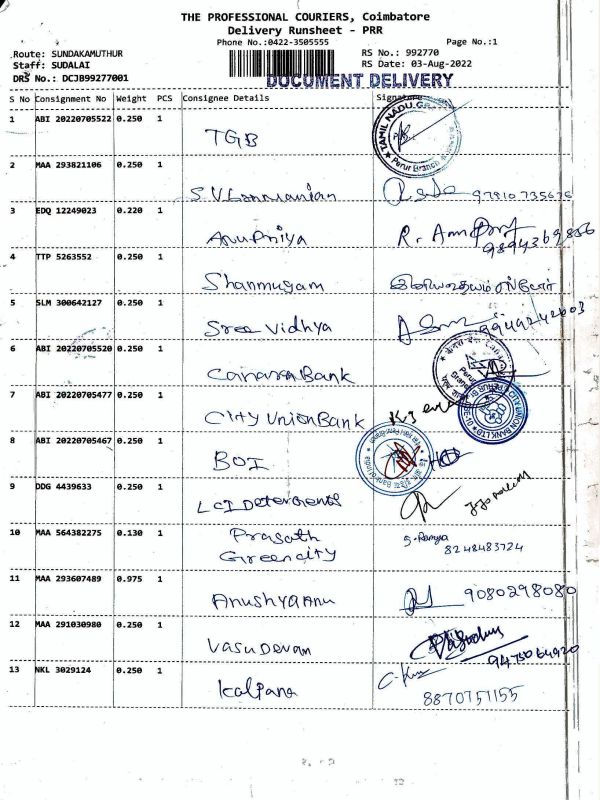 THE PROFESSIONAL COURIERS, Coimbatore
Delivery Runsheet - PRR
Phone No.:0422-3505555 Page No.:1
Route: SUNDAKAMUTHUR RS No.: 992770
Staff: SUDALAI RS Date: 03-Aug-2022
DRS No.: DCJB99277001 DOCUMENT DELIVERY
S No Consignment No Weight PCS Consignee Details Signature
1 ABI 20220705522 0.250 1 TGB
TAMIL NADU GRA
Perur Branch
2 MAA 293821106 0.250 1
3 EDQ 12249023 0.220 1 Anupriya R.
9894369856
4 TTP 5263552 0.250 1 Shanmugam
5 SLM 300642127 0.250 1 Sree Vidhya
9949242603
6 ABI 20220705520 0.250 1 Canara Bank
Perur
7 ABI 20220705477 0.250 1 City Union Bank
8 ABI 20220705467 0.250 1 BOI
9 DDG 4439633 0.250 1 LCI Detergents
10 MAA 564382275 0.130 1 Prasath S. Ramya
Green city 8248483724
11 MAA 293607489 0.975 1 Anushya Anu 9080298080
12 MAA 291030980 0.250 1 Vasu Devan Vasudevan
9475064920
13 NKL 3029124 0.250 1 Kalpana
8870751155